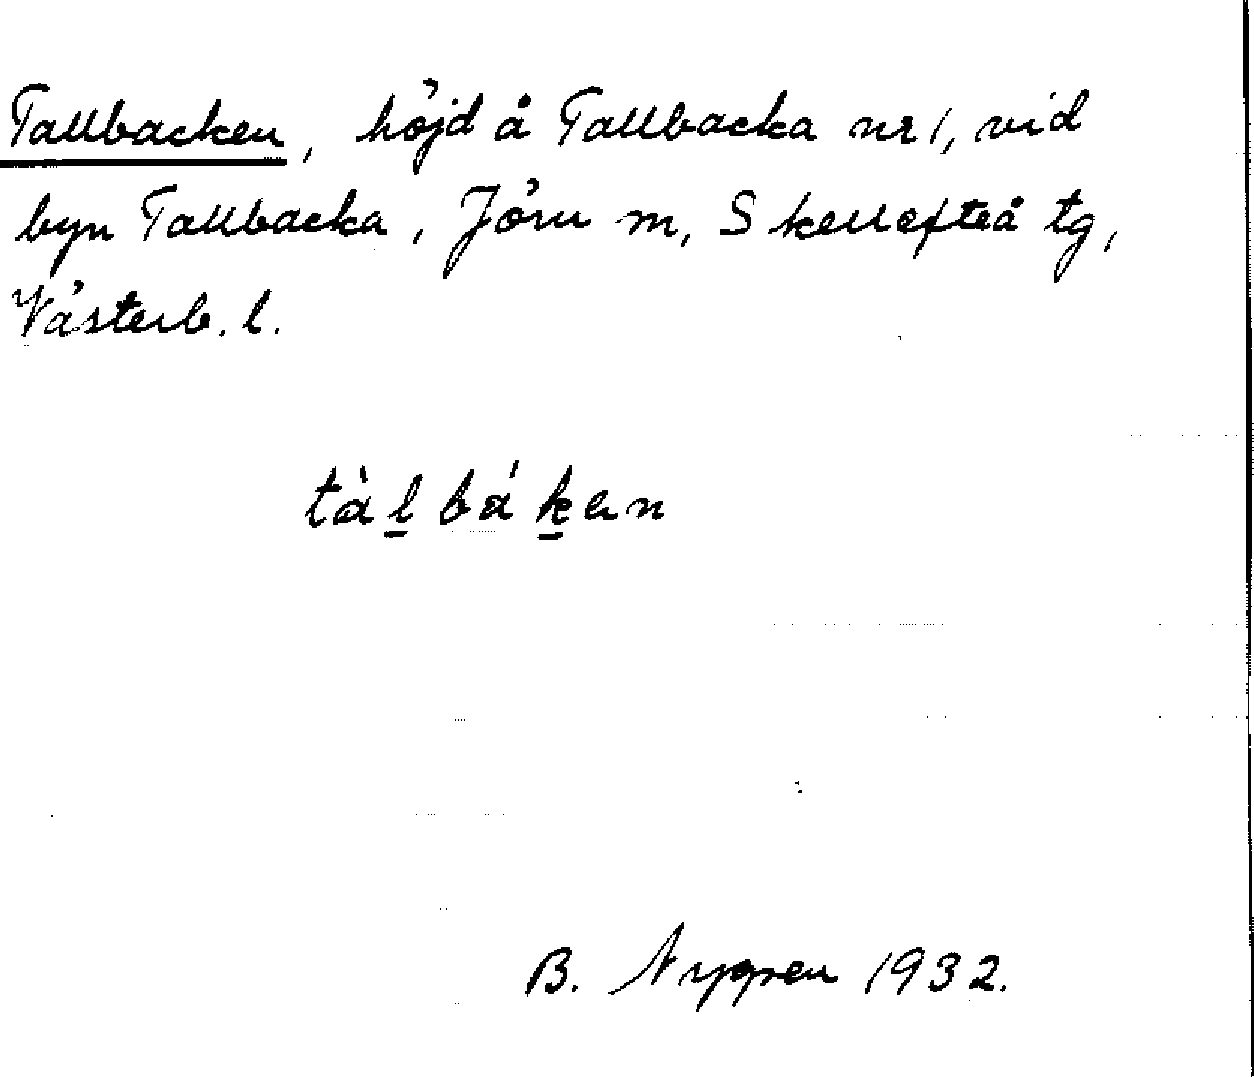 Tallbacken, höjd å Tallbacka nr 1, vid
byn Tallbacka, Jörn m, Skellefteå tg,
Västerb. l.
tàl̲ bá k̲en
B. Nygren 1932.